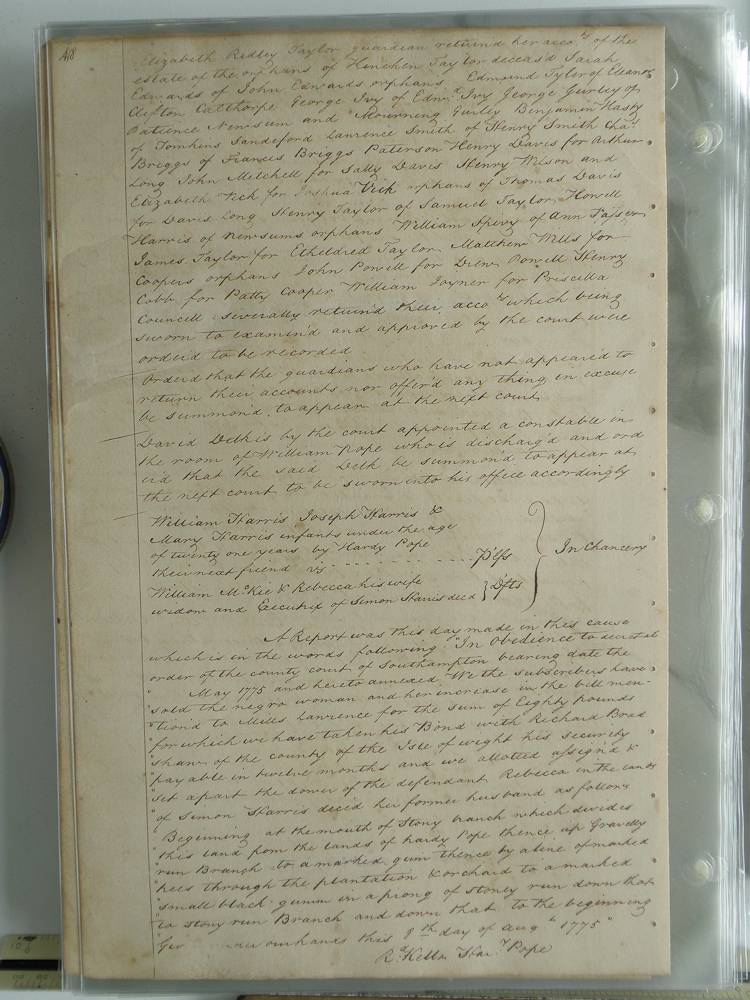 418
Elizabeth Ridley Taylor guardian return'd her acco.ts of the
estate of the orphans of Hinchen Taylor deceas'd Sarah
Edwards of John Edwards orphans Edmund Tyler of Eleanor
Clifton Calthorpe George Ivy of Edw.d Ivy George Gurley of
Patience Newsum and Mourning Gurley Benjamin Hasty
of Tomkins Sandeford Laurence Smith of Henry Smith Cha.s
Briggs of Francis Briggs Paterson Henry Davis for Arthur
Long John Mitchell for Sally Davis Henry Wilson and
Elizabeth Vick for Joshua Vick orphans of Thomas Davis
for Davis Long Henry Taylor of Samuel Taylor Howell
Harris of Newsums orphans William Spivy of Ann
James Taylor for Etheldred Taylor Matthew Wills for
Coopers orphans John Powell for Drew Powell Henry
Cobb for Patty Cooper William Joyner for Priscilla
Councill severally return'd their acco.ts which being
sworn to examin'd and approved by the court were
orderd to be recorded
Orderd that the guardians who have not appeared to
return their accounts nor offer'd any thing in excuse
be summon'd to appear at the next court
David Delk is by the court appointed a constable in
the room of William Pope who is discharg'd and ord
er'd that the said Delk be summon'd to appear at
the next court to be sworn into his office accordingly
William Harris Joseph Harris &
Mary Harris infants under the age
of twenty one years by Hardy Pope
their next friend Plfs
vs In Chancery
William McKie & Rebecca his wife
widow and Executrix of Simon Harris decd Dfts
A Report was this day made in this cause
which is in the words following "In Obedience to
order of the county court of Southampton bearing date the
" May 1775 and hereto annexed We the subscribers have
"sold the negro woman and her increase in the bill men-
"tion'd to Mills Lawrence for the sum of Eighty pounds
"for which we have taken his Bond with Richard Brad
"shaw of the county of the Isle of wight his security
"payable in twelve months and we allotted assign'd &
"set apart the dower of the defendant Rebecca in the lands
"of Simon Harris decied her former husband as follows
"Beginning at the mouth of Stony branch which divides
"this land from the lands of hardy Pope thence up Gravelly
"run Branch to a marked gum thence by a line of marked
"trees through the plantation & orchard to a marked
"small black gum in a prong of stoney run down that
"to stony run Branch and down that to the beginning
our hands this 9th day of Aug.t 1775"
R.d Kello Har.y Pope